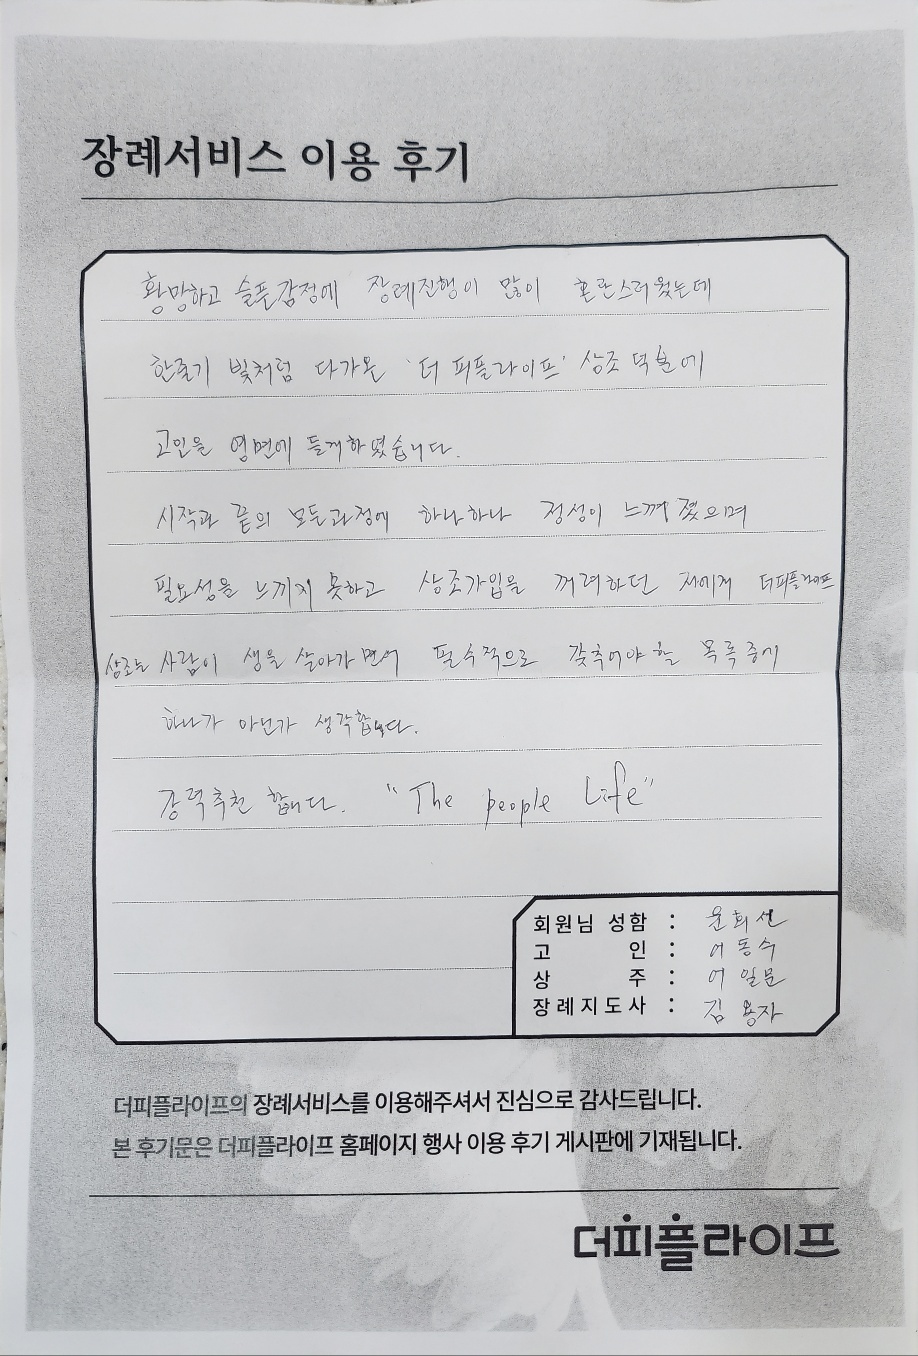 장례서비스 이용 후기
황망하고 슬픈감정에 장례진행이 많이 혼란스러웠는데
한줄기 빛처럼 다가온 '더 피플라이프' 상조 덕분에
고인을 영면에 들게하였습니다.
시작과 끝의 모든과정에 하나하나 정성이 느껴졌으며
필요성을 느끼지 못하고 상조가입을 꺼려하던 저에게 더피플라이프
상조는 사람이 생을 살아가면서 필수적으로 갖추어야 할 목록중에
하나가 아닌가 생각합니다.
강력추천 합니다. "The people Life"
회원님 성함 : 윤희선
고 인 : 어동수
상 주 : 어일문
장례지도사 : 김용자
더피플라이프의 장례서비스를 이용해주셔서 진심으로 감사드립니다.
본 후기문은 더피플라이프 홈페이지 행사 이용 후기 게시판에 기재됩니다.
더피플라이프